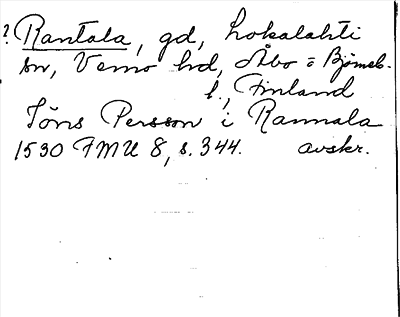 ? Rantala, gd, Lokalahti
sn, Vemo hd, Åbo o Björneb.
l., Finland
Jöns Persson i Rannala
1530 FMU 8, s. 344. avskr.